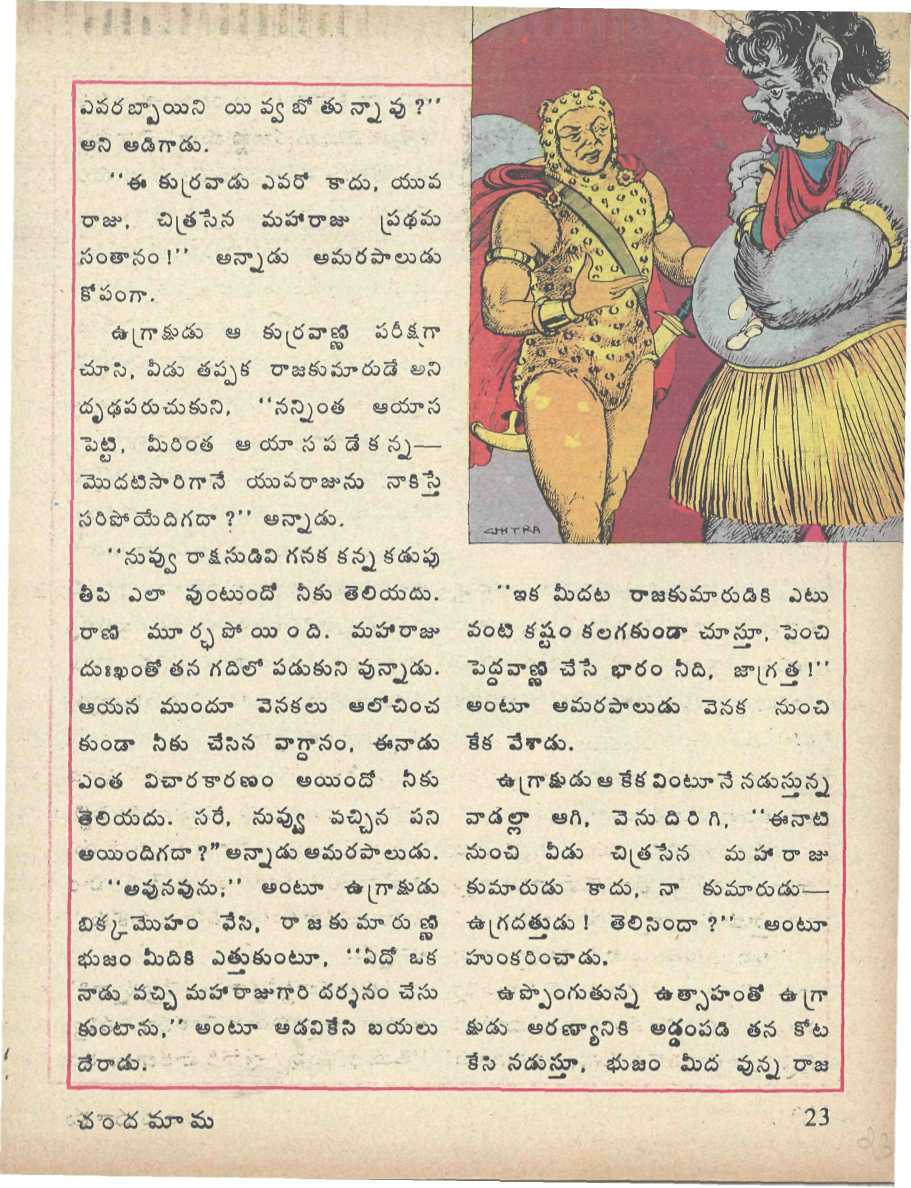 ఎవరబ్బాయిని యివ్వబోతున్నావు?''
అని అడిగాడు.
''ఈ కుర్రవాడు ఎవరో కాదు, యువ
రాజు, చిత్రసేన మహారాజు ప్రథమ
సంతానం!'' అన్నాడు అమరపాలుడు
కోపంగా.
ఉగ్రాక్షుడు ఆ కుర్రవాణ్ణి పరీక్షగా
చూసి, వీడు తప్పక రాజకుమారుడే అని
దృఢపరుచుకుని, ''నన్నింత ఆయాస
పెట్టి, మీరింత ఆయాసపడేకన్న—
మొదటిసారిగానే యువరాజును నాకిస్తే
సరిపోయేదిగదా?'' అన్నాడు.
''నువ్వు రాక్షసుడివి గనక కన్న కడుపు
తీపి ఎలా వుంటుందో నీకు తెలియదు.
రాణి మూర్ఛపోయింది. మహారాజు
దుఃఖంతో తన గదిలో పడుకుని వున్నాడు.
ఆయన ముందూ వెనకలు ఆలోచించ
కుండా నీకు చేసిన వాగ్దానం, ఈనాడు
ఎంత విచారకారణం అయిందో నీకు
తెలియదు. సరే, నువ్వు వచ్చిన పని
అయిందిగదా?'' అన్నాడు అమరపాలుడు.
''అవునవును,'' అంటూ ఉగ్రాక్షుడు
బిక్కమొహం వేసి, రాజకుమారుణ్ణి
భుజం మీదికి ఎత్తుకుంటూ, ''ఏదో ఒక
నాడు వచ్చి మహారాజుగారి దర్శనం చేసు
కుంటాను,'' అంటూ అడవికేసి బయలు
దేరాడు.
CHITRA
''ఇక మీదట రాజకుమారుడికి ఎటు
వంటి కష్టం కలగకుండా చూస్తూ, పెంచి
పెద్దవాణ్ణి చేసే భారం నీది, జాగ్రత్త!''
అంటూ అమరపాలుడు వెనక నుంచి
కేక వేశాడు.
ఉగ్రాక్షుడు ఆ కేక వింటూనే నడుస్తున్న
వాడల్లా ఆగి, వెనుదిరిగి, ''ఈనాటి
నుంచి వీడు చిత్రసేన మహారాజు
కుమారుడు కాదు, నా కుమారుడు—
ఉగ్రదత్తుడు! తెలిసిందా?'' అంటూ
హుంకరించాడు.
ఉప్పొంగుతున్న ఉత్సాహంతో ఉగ్రా
క్షుడు అరణ్యానికి అడ్డంపడి తన కోట
కేసి నడుస్తూ, భుజం మీద వున్న రాజ
చందమామ
23